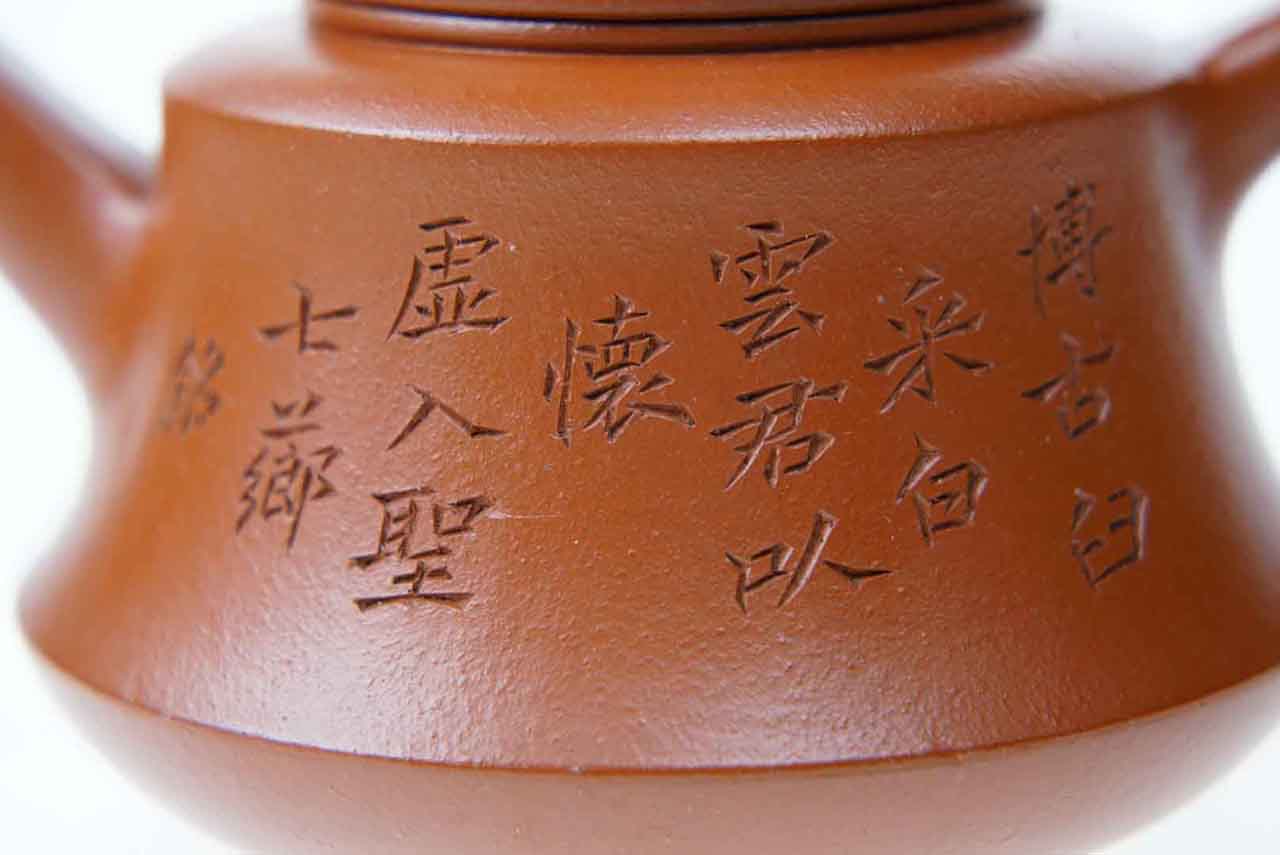 博古臼
采白
雲君以
懷
虛入聖
七薌
銘